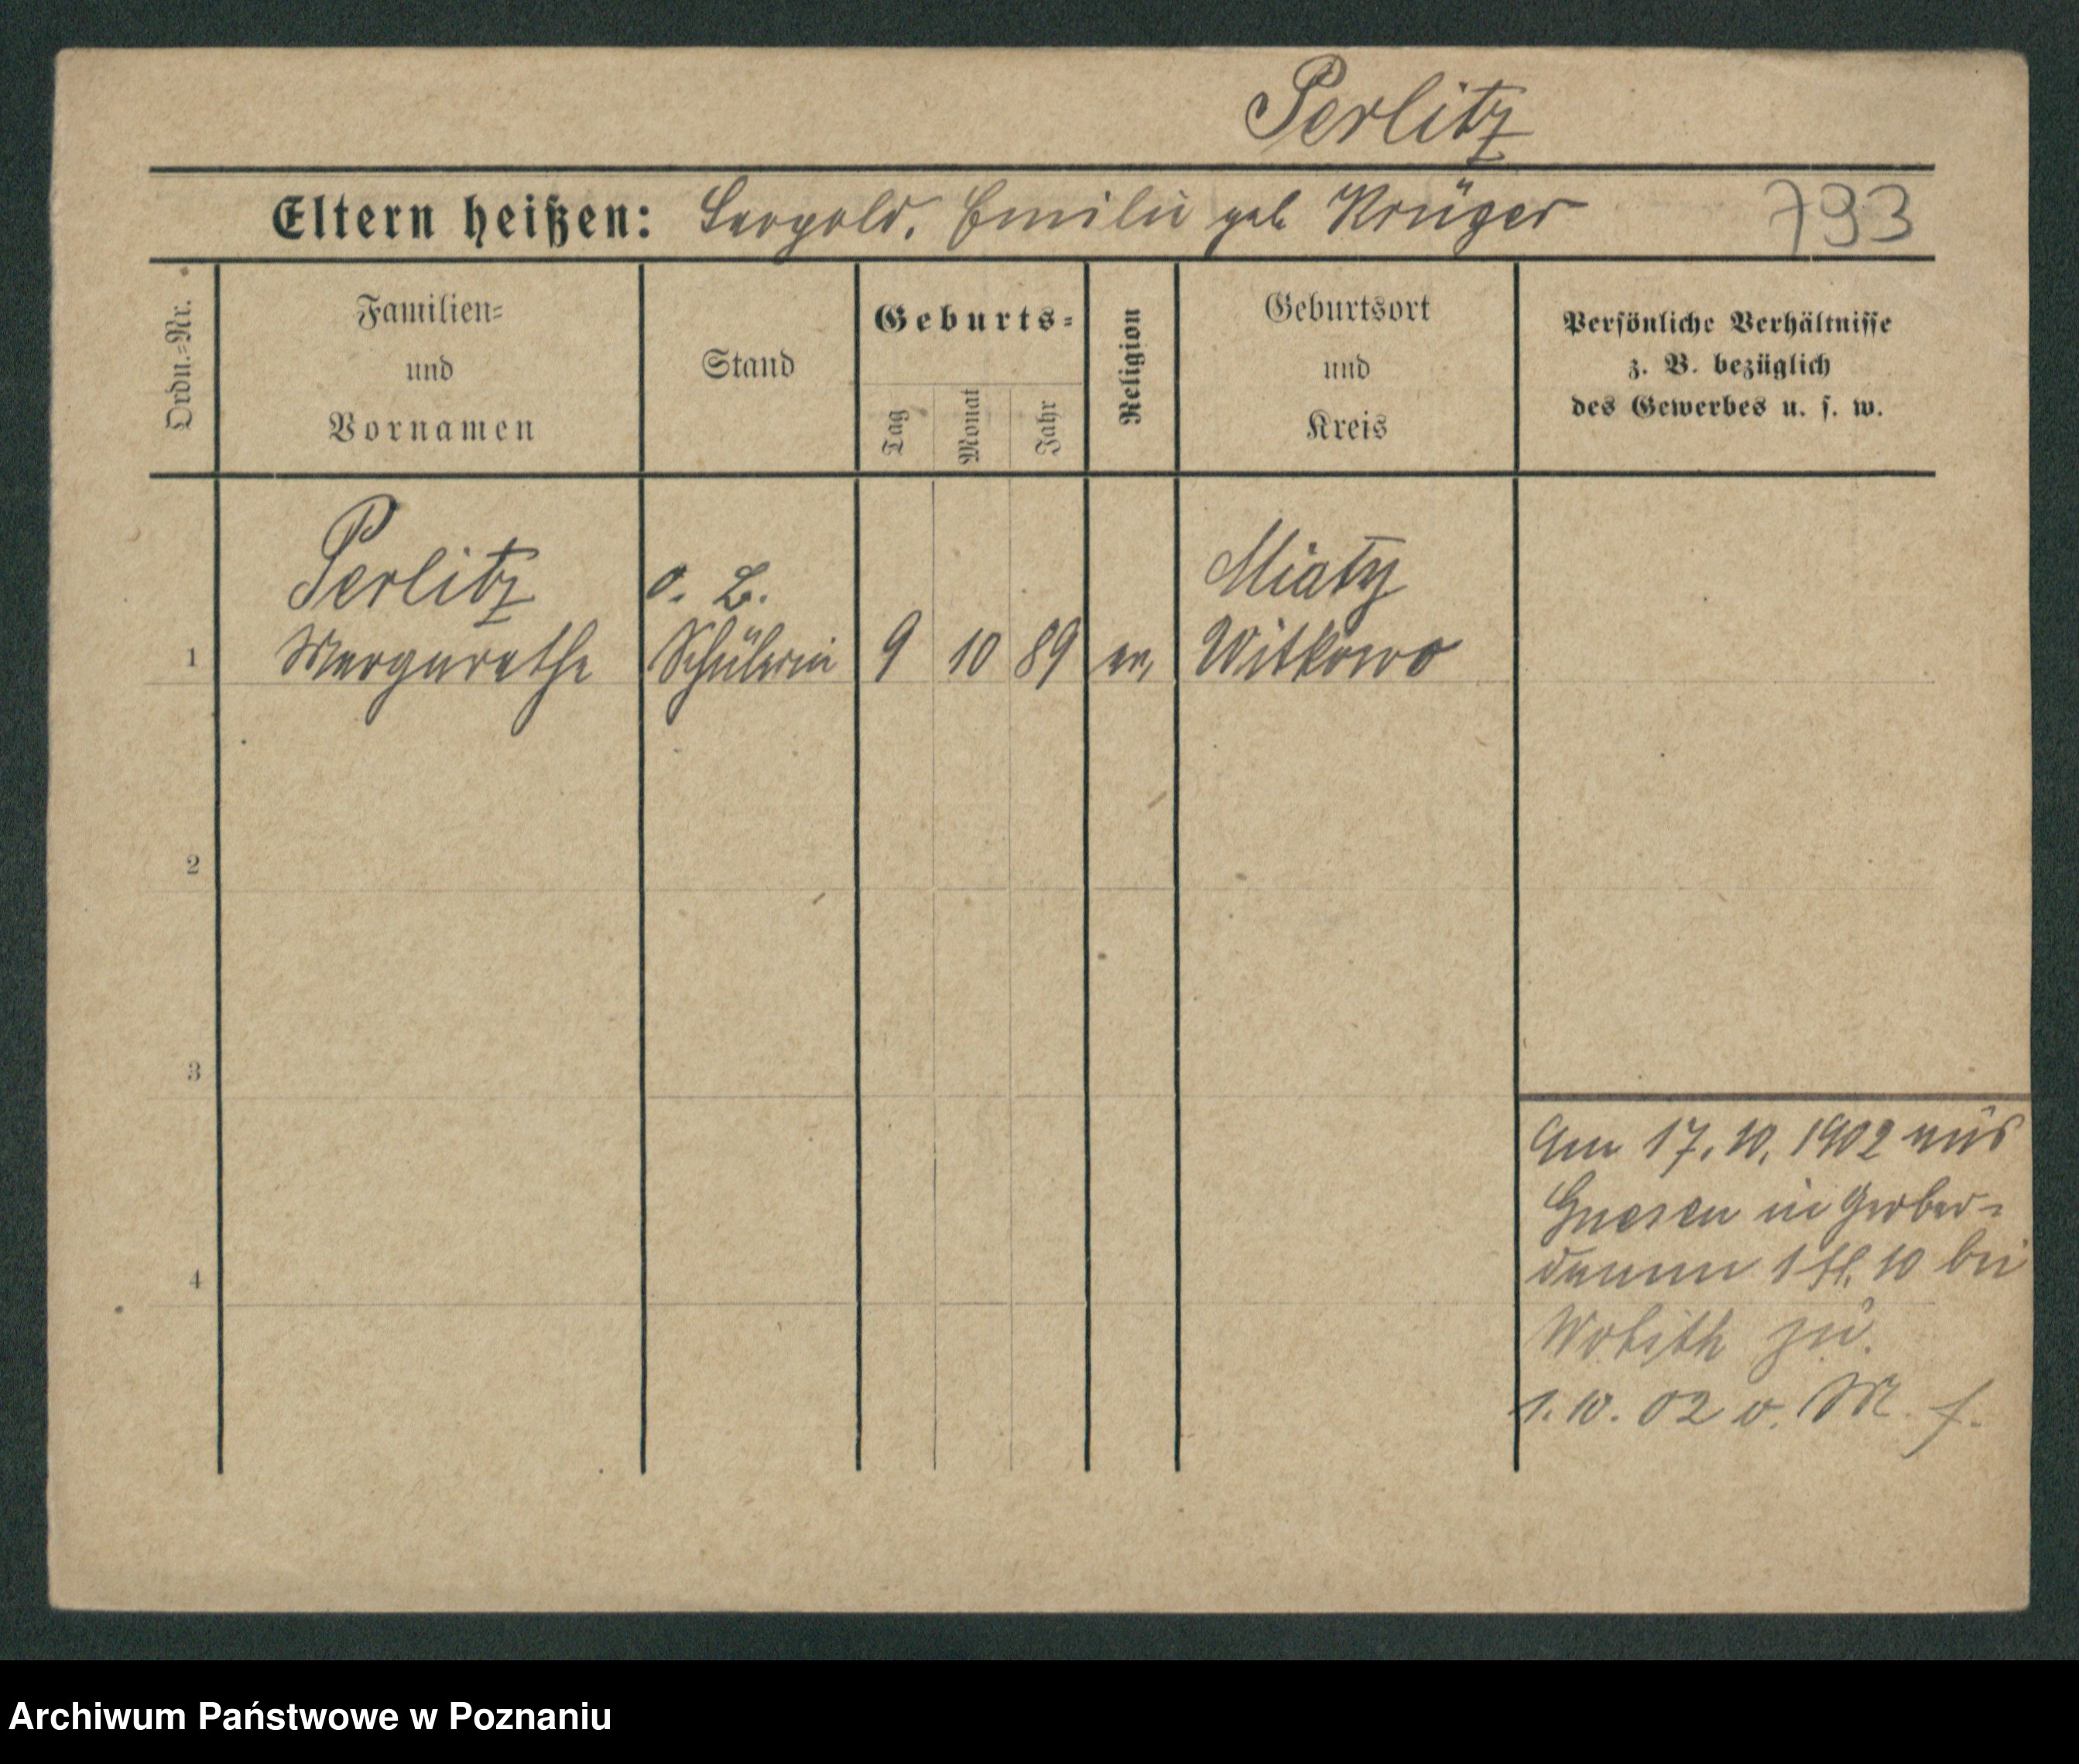 Perlitz
Eltern heißen: Leopold. Emilie geb Krüger 793
Ordn.=Nr.
Familien=
und
Vornamen
Stand
Geburts=
Tag
Monat
Jahr
Religion
Geburtsort
und
Kreis
Persönliche Verhältnisse
z. B. bezüglich
des Gewerbes u. s. w.
Perlitz o. B. Miaty
1 Margarethe Schülerin 9 10 89 ev, Witkowo
2
3
4
Am 17.10.1902 aus
Gnesen in Gerber=
damm 1 II. 10 bei
zu.
1.10.02 v. M. f.
Archiwum Państwowe w Poznaniu